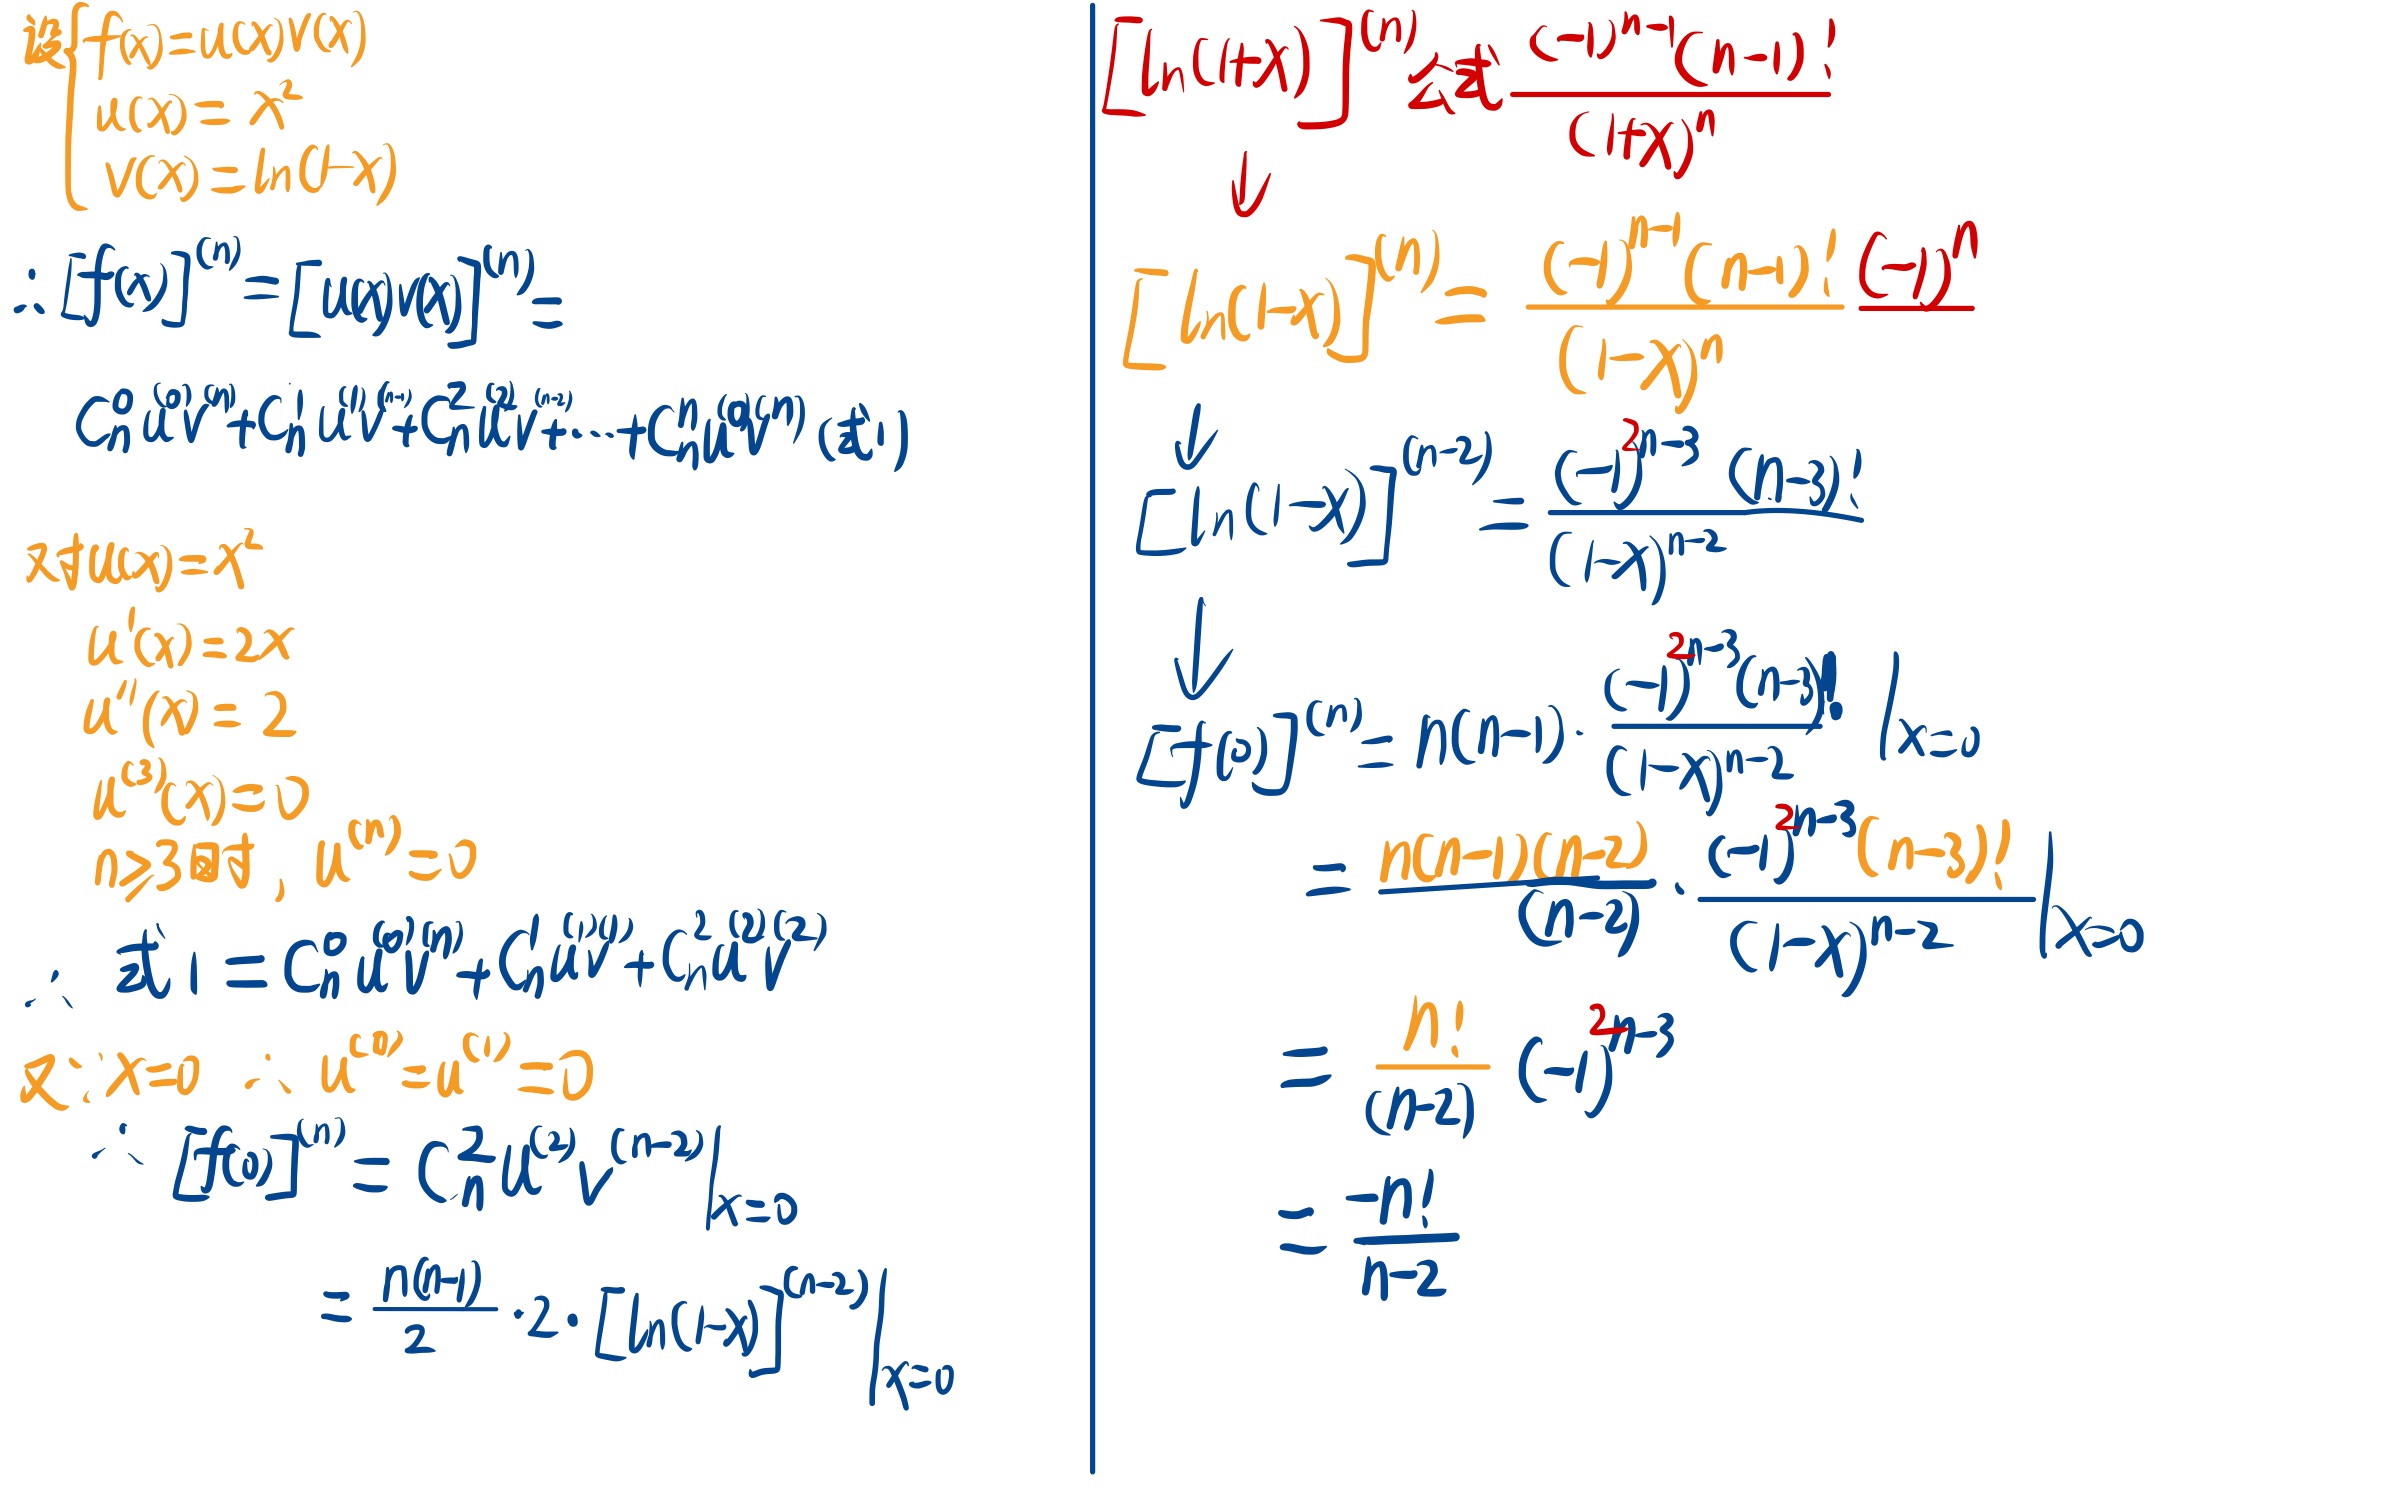 设{f(x)=u(x)v(x)
u(x)=x²
v(x)=ln(1-x)
∴[f(x)]^(n)=[u(x)v(x)]^(n)=
C_n^0 u^(0)v^(n)+C_n^1 u^(1)v^(n-1)+C_n^2 u^(2)v^(n-2)+...+C_n^n u^(0)v^(n) (式1)
对u(x)=x²
u'(x)=2x
u''(x)=2
u^(3)(x)=0
n≥3时,u^(n)=0
∴式1=C_n^0 u^(0)v^(n)+C_n^1 u^(1)v^(1)+C_n^2 u^(2)v^(2)
又∵x=0 ∴u^(0)=u^(1)=0
∴[f(0)]^(n)=C_n^2 u^(2)v^(n-2)|x=0
=n(n-1)/2·2·[ln(1-x)]^(n-2)|x=0
[ln(1+x)]^(n) 公式 (-1)^(n-1)(n-1)!/(1+x)^n
↓
[ln(1-x)]^(n)=(-1)^(n-1)(n-1)!/(1-x)^n (-1)^n
↓
[ln(1-x)]^(n-2)=(-1)^(2n-3)(n-3)!/(1-x)^(n-2)
↓
[f(0)]^(n)=n(n-1)·(-1)^(2n-3)(n-3)!/(1-x)^(n-2)|x=0
=n(n-1)(n-2)/(n-2)·(-1)^(2n-3)(n-3)!/(1-x)^(n-2)|x=0
=n!/(n-2)(-1)^(2n-3)
=-n!/n-2